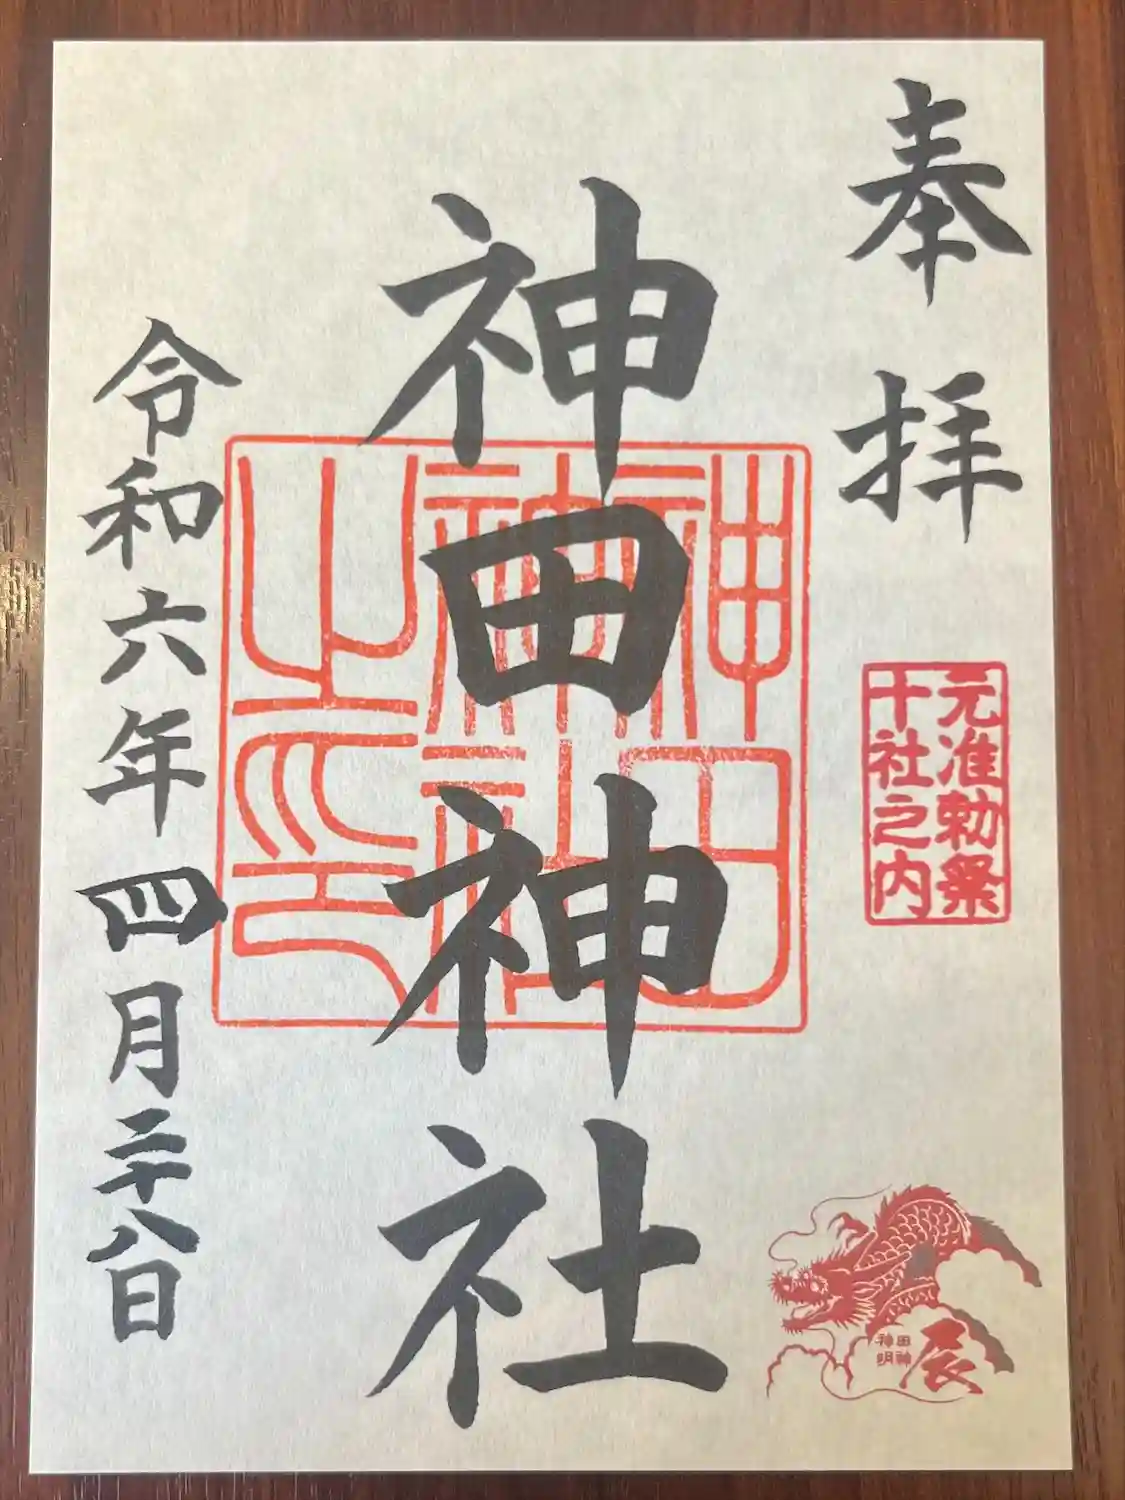 奉拝
元准勅祭
十社之内
神田神社
神田神社之印
令和六年四月二十八日
辰
神田
明神